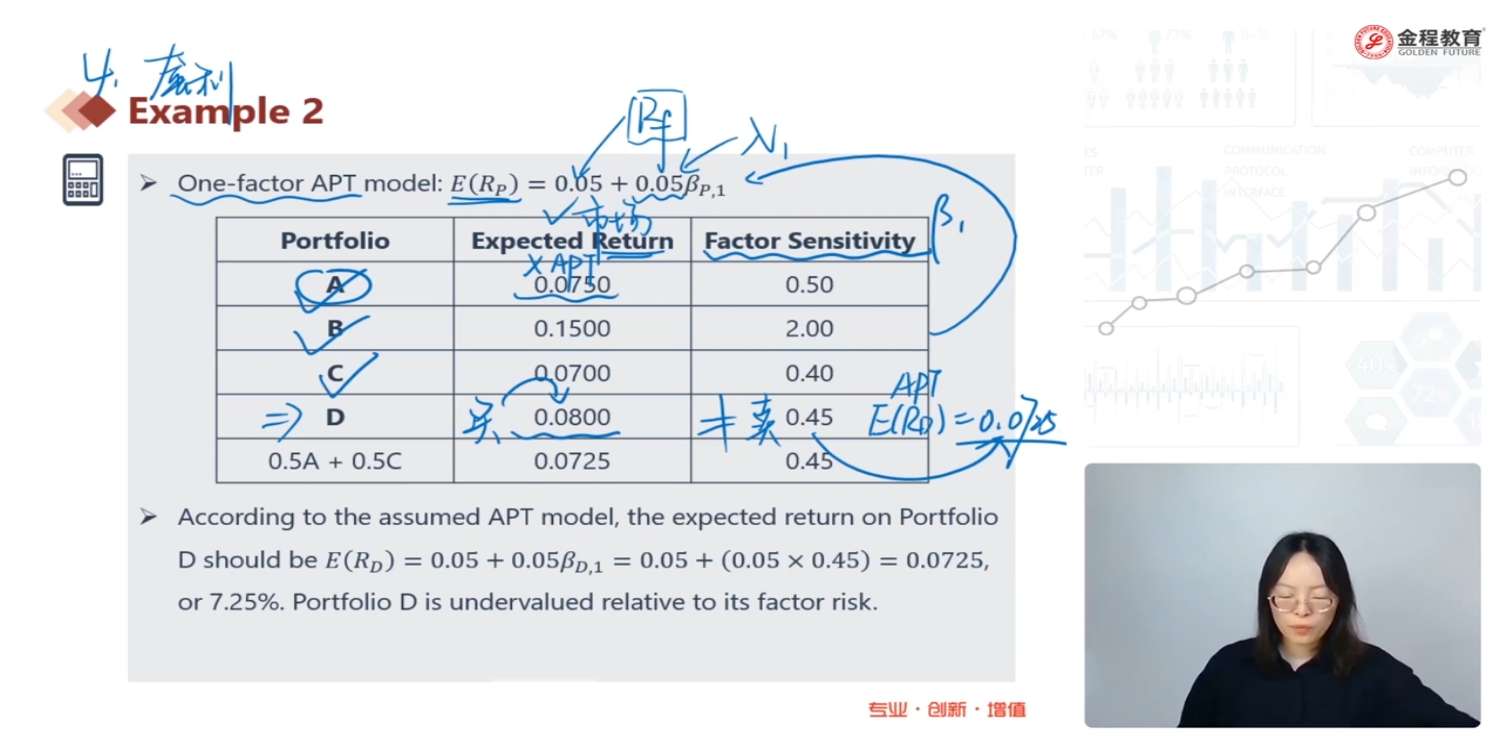 4. 套利
金程教育
GOLDEN FUTURE
Example 2
Rf
λ1
One-factor APT model: E(R_P) = 0.05 + 0.05β_{P,1}
市场
β1
Portfolio Expected Return Factor Sensitivity
× APT
A 0.0750 0.50
B 0.1500 2.00
C 0.0700 0.40
APT
⇒ D 买 0.0800 卖 0.45 E(R_D) = 0.0725
0.5A + 0.5C 0.0725 0.45
According to the assumed APT model, the expected return on Portfolio
D should be E(R_D) = 0.05 + 0.05β_{D,1} = 0.05 + (0.05 × 0.45) = 0.0725,
or 7.25%. Portfolio D is undervalued relative to its factor risk.
专业·创新·增值
COMMUNICATION
PROTOCOL
INTERFACE
40%
72%